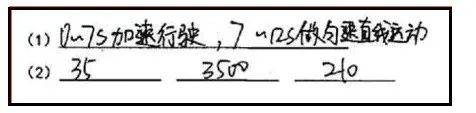 (1) 0~7s加速行驶,7~12s做匀速直线运动
(2) 35 3500 210